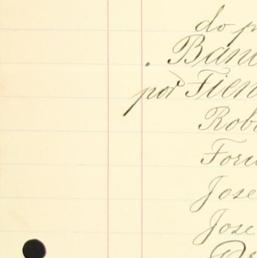 do p
Ban
por Tien
Rob
Foru
Jose
Jose